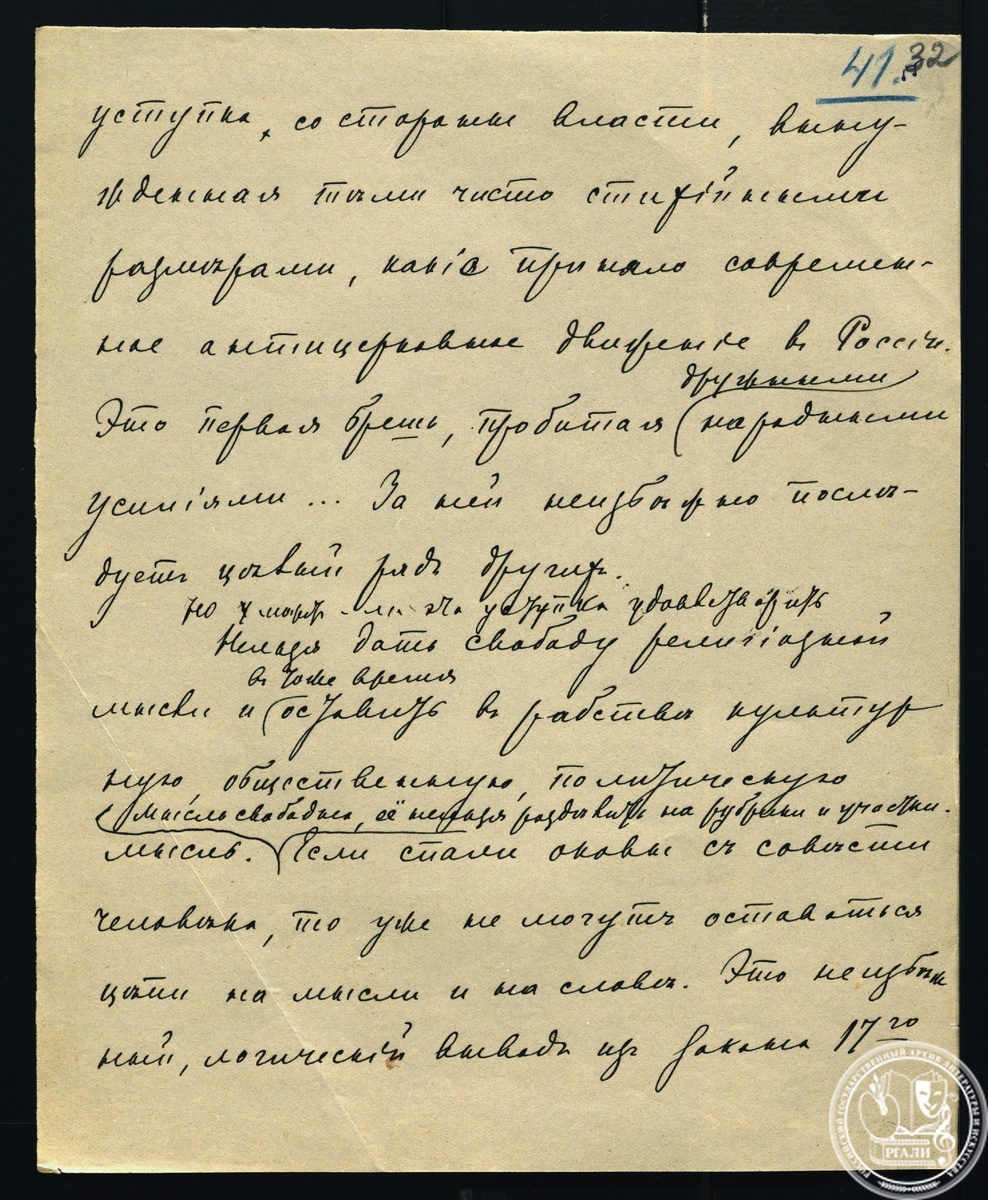 41. 32
уступка, со стороны власти, выну-
жденная тѣми чисто стихійными
размѣрами, какіе приняло современ-
ное антицерковное движеніе в Россіи.
дружными
Это первая брешь, пробитая народными
усиліями... За ней неизбѣжно послѣ-
дуетъ цѣлый рядъ других.
Но может-ли эта уступка удовлетворить
Нельзя дать свободу религіозной
в тоже время
мысли и оставить в рабствѣ культур
ную, общественную, политическую
Мысль свободна, её нельзя раздѣлить на рубрики и участки.
мысль. Если спали оковы съ совѣсти
человѣка, то уже не могутъ оставаться
цѣпи на мысли и на словѣ. Это неизбѣж
ный, логическій выводъ из закона 17го
РОССИЙСКИЙ ГОСУДАРСТВЕННЫЙ АРХИВ ЛИТЕРАТУРЫ И ИСКУССТВА
РГАЛИ